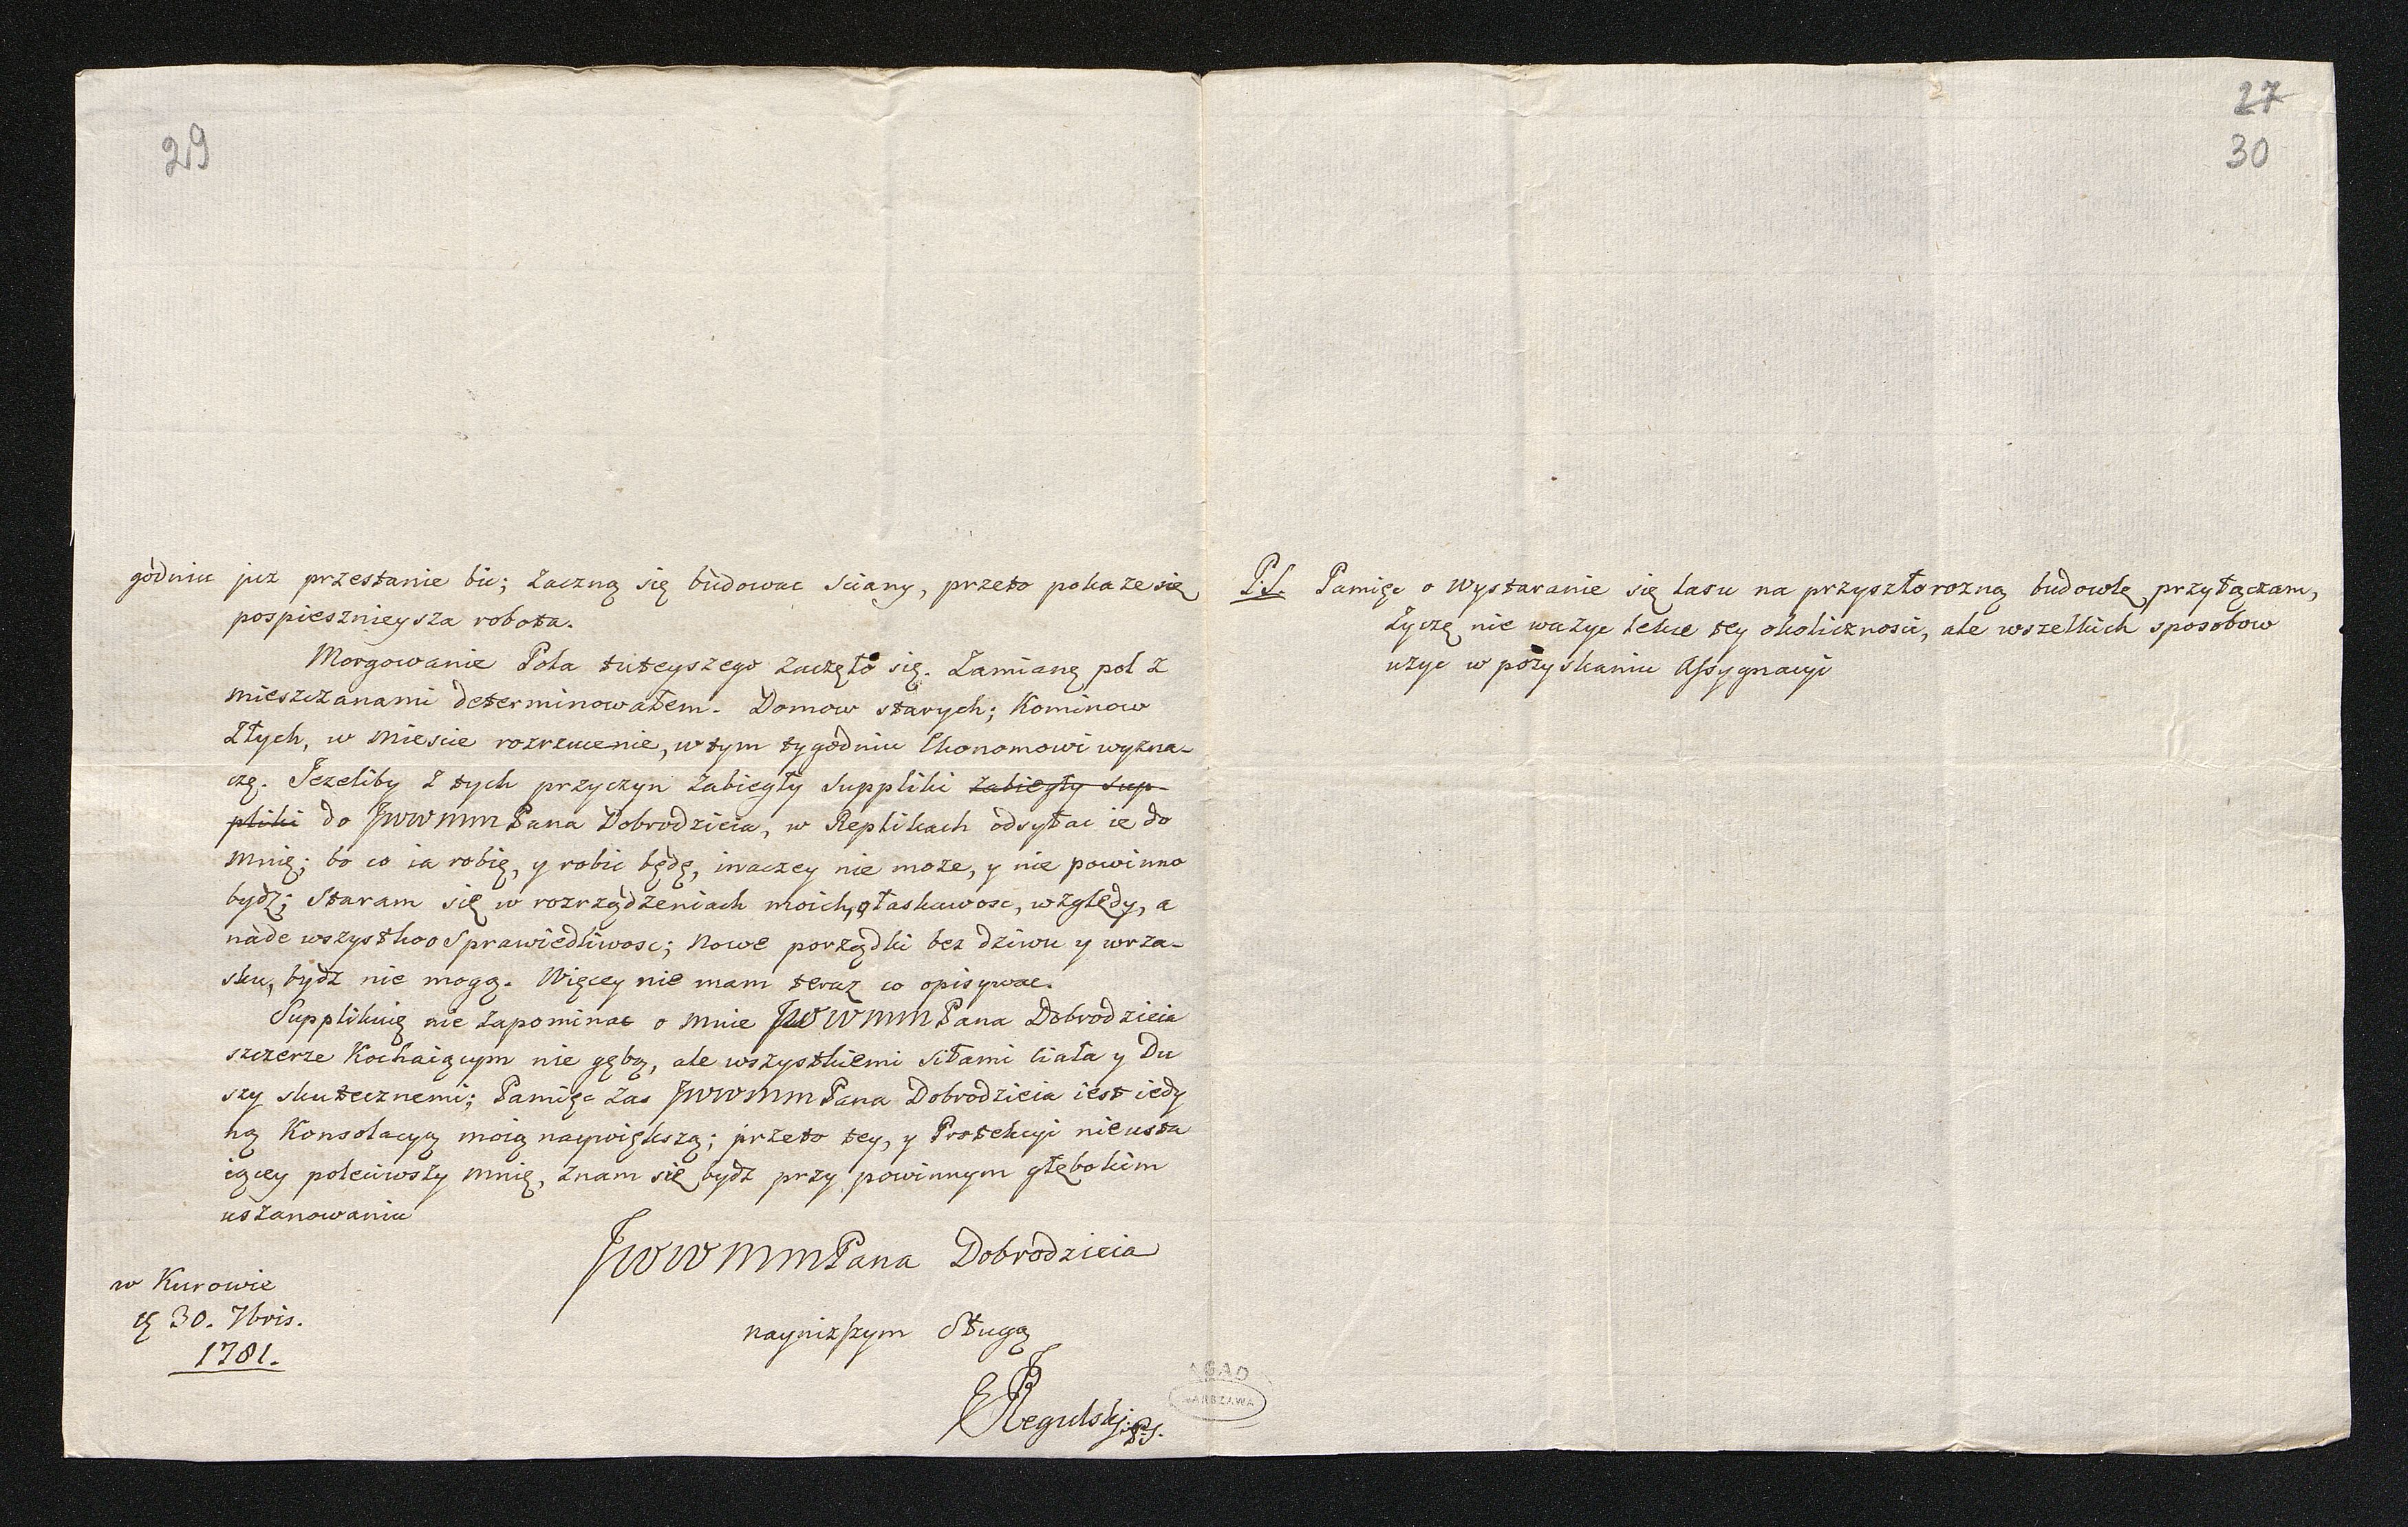 29
godniu juz przestanie bic; zaczną się budowac sciany, przeto pokaze się
pospiesznieysza robota.
Morgowanie Pola tuteyszego zaczęło się. Zamianę pol z
mieszczanami determinowałem. Domow starych; Kominow
Złych, w Miescie rozrzucenie, w tym tygodniu Ekonomowi wyzna-
czę. Jezeliby z tych przyczyn zabiegły Suppliki zabiegły Sup-
pliki do JWWMM Pana Dobrodzieia, w Replikach odsyłac ie do
Mnię; bo co ia robię, y robic będę, inaczey nie moze, y nie powinno
bydz; Staram się w rozrządzeniach moich, o łaskawosc, względy, a
nade wszystko o Sprawiedliwosc; Nowe porządki bez dziwu y wrza-
sku, bydz nie mogą. Więcey nie mam teraz co opisywac.
Supplikuię nie zapominac o Mnie JWWMM Pana Dobrodzieia
szczerze Kochaiącym nie gębą, ale wszystkiemi siłami ciała y Du
szy skutecznemi; Pamięc zas JWWMM Pana Dobrodzieia iest iedy
ną Konsolacyą moią naywiększą; przeto tey, y Protekcyi nieusta
iącey poleciwszy Mnię, znam się bydz przy powinnym głębokim
uszanowaniu
JWWMM Pana Dobrodzieia
w Kurowie
30. 7bris.
1781.
nayniższym Sługą
Regulski
AGAD
WARSZAWA
27
30
P.S. Pamięc o Wystaranie się lasu na przyszłorozną budowlę przyłączam,
Zyczę nie wazyc lekce tey okolicznosci, ale wszelkich sposobow
uzyc w pozyskaniu Assygnacyi